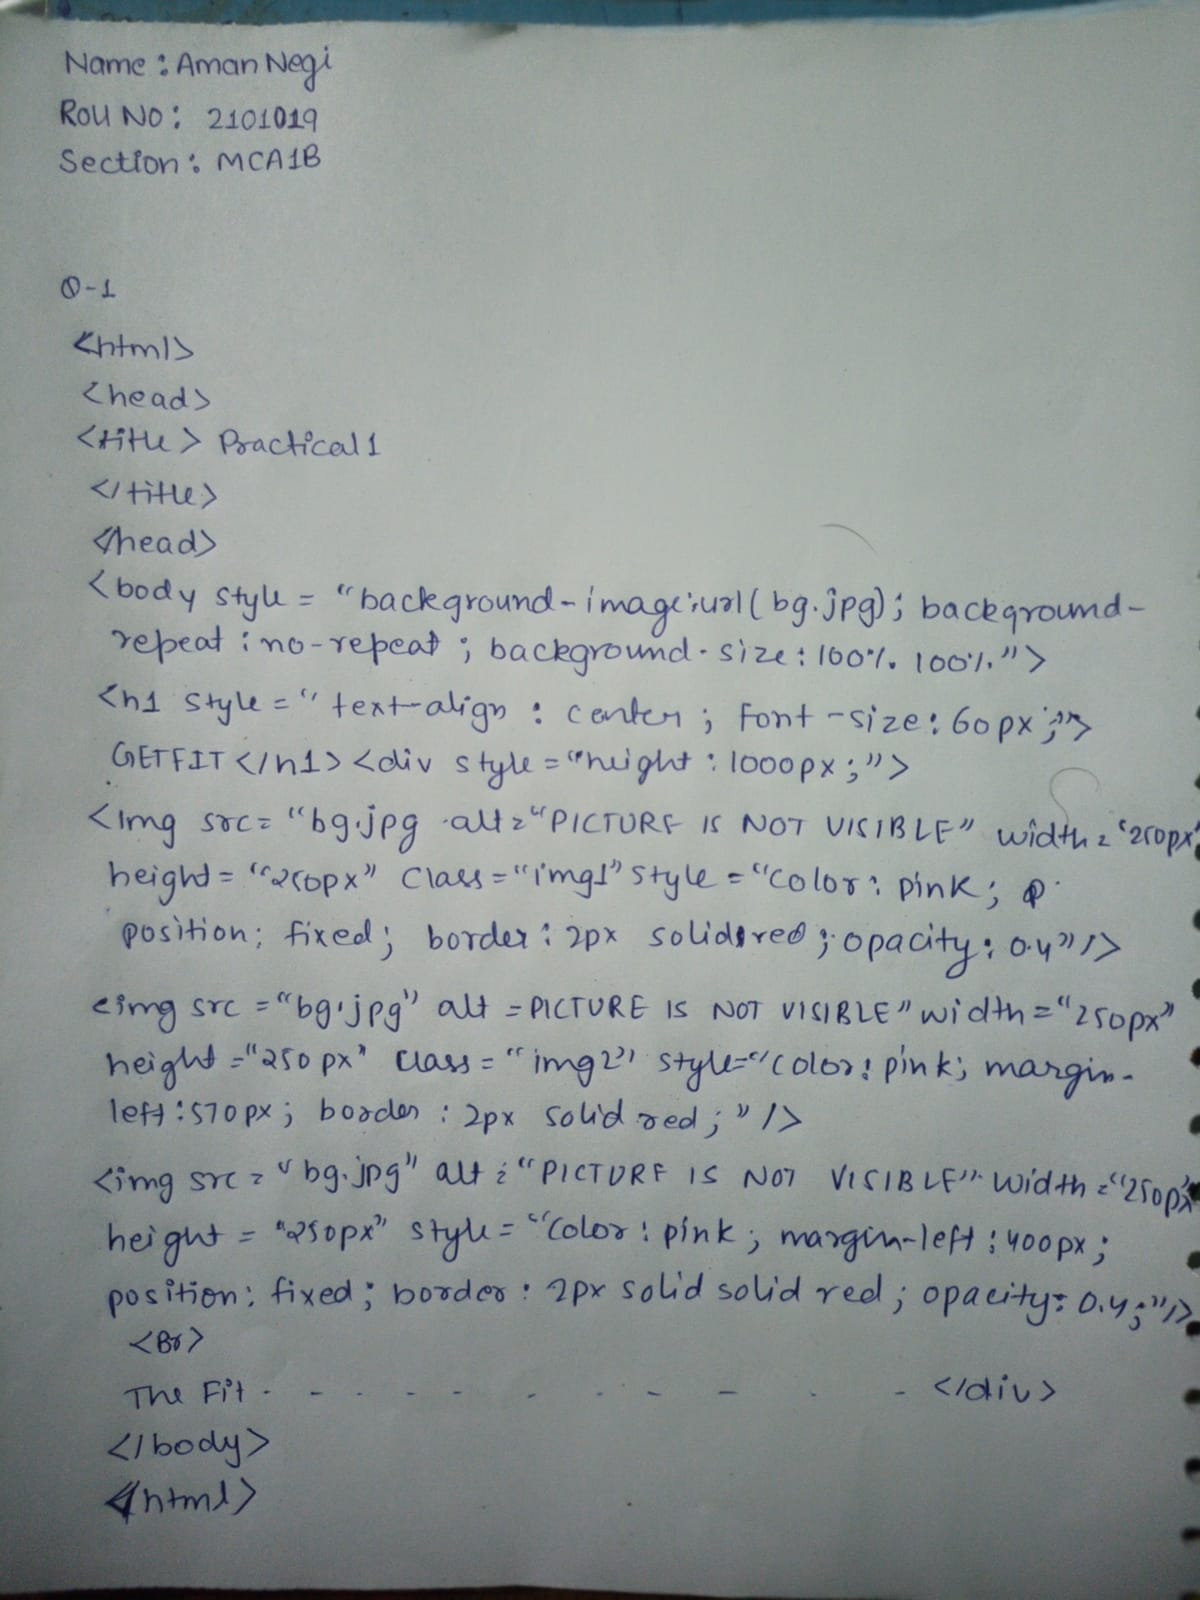 Name : Aman Negi
Roll No : 2101019
Section : MCA1B
Q-1
<html>
<head>
<title> Practical 1
</title>
</head>
<body style = "background-image:url( bg.jpg); background-
repeat : no-repeat ; background-size : 100% 100%.">
<h1 style = " text-align : center ; font-size: 60px ;">
GETFIT </h1> <div style = "height : 1000px ;">
<img src= "bg.jpg alt="PICTURE IS NOT VISIBLE" width = "250px"
height = "250px" class = "img1" style = "color : pink;
position; fixed; border : 2px solid red ; opacity : 0.4" />
<img src = "bg.jpg" alt = PICTURE IS NOT VISIBLE" width = "250px"
height = "250 px" class = "img2" style="color: pink; margin-
left : 570px ; border : 2px solid red ; " />
<img src = "bg.jpg" alt = "PICTURE IS NOT VISIBLE" width = "250px"
height = "250px" style = "color : pink ; margin-left : 400px ;
position: fixed ; border : 2px solid solid red ; opacity: 0.4 ;"/>
<Br>
The Fit - - - - - - - - - - - </div>
</body>
</html>